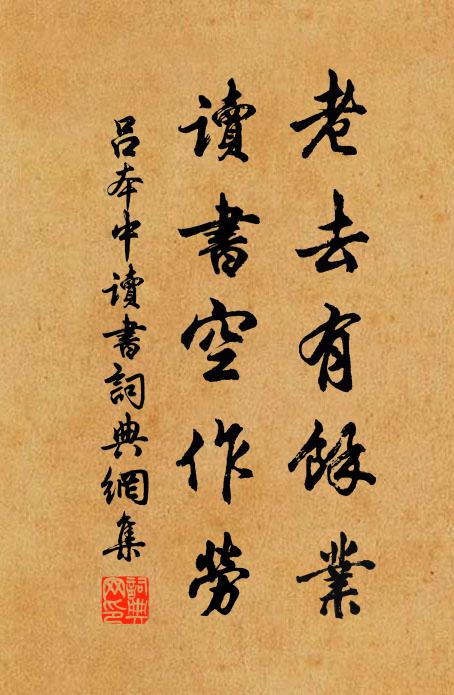 老去有餘業
讀書空作勞
吕本中讀書詞典網集
詞典
网印